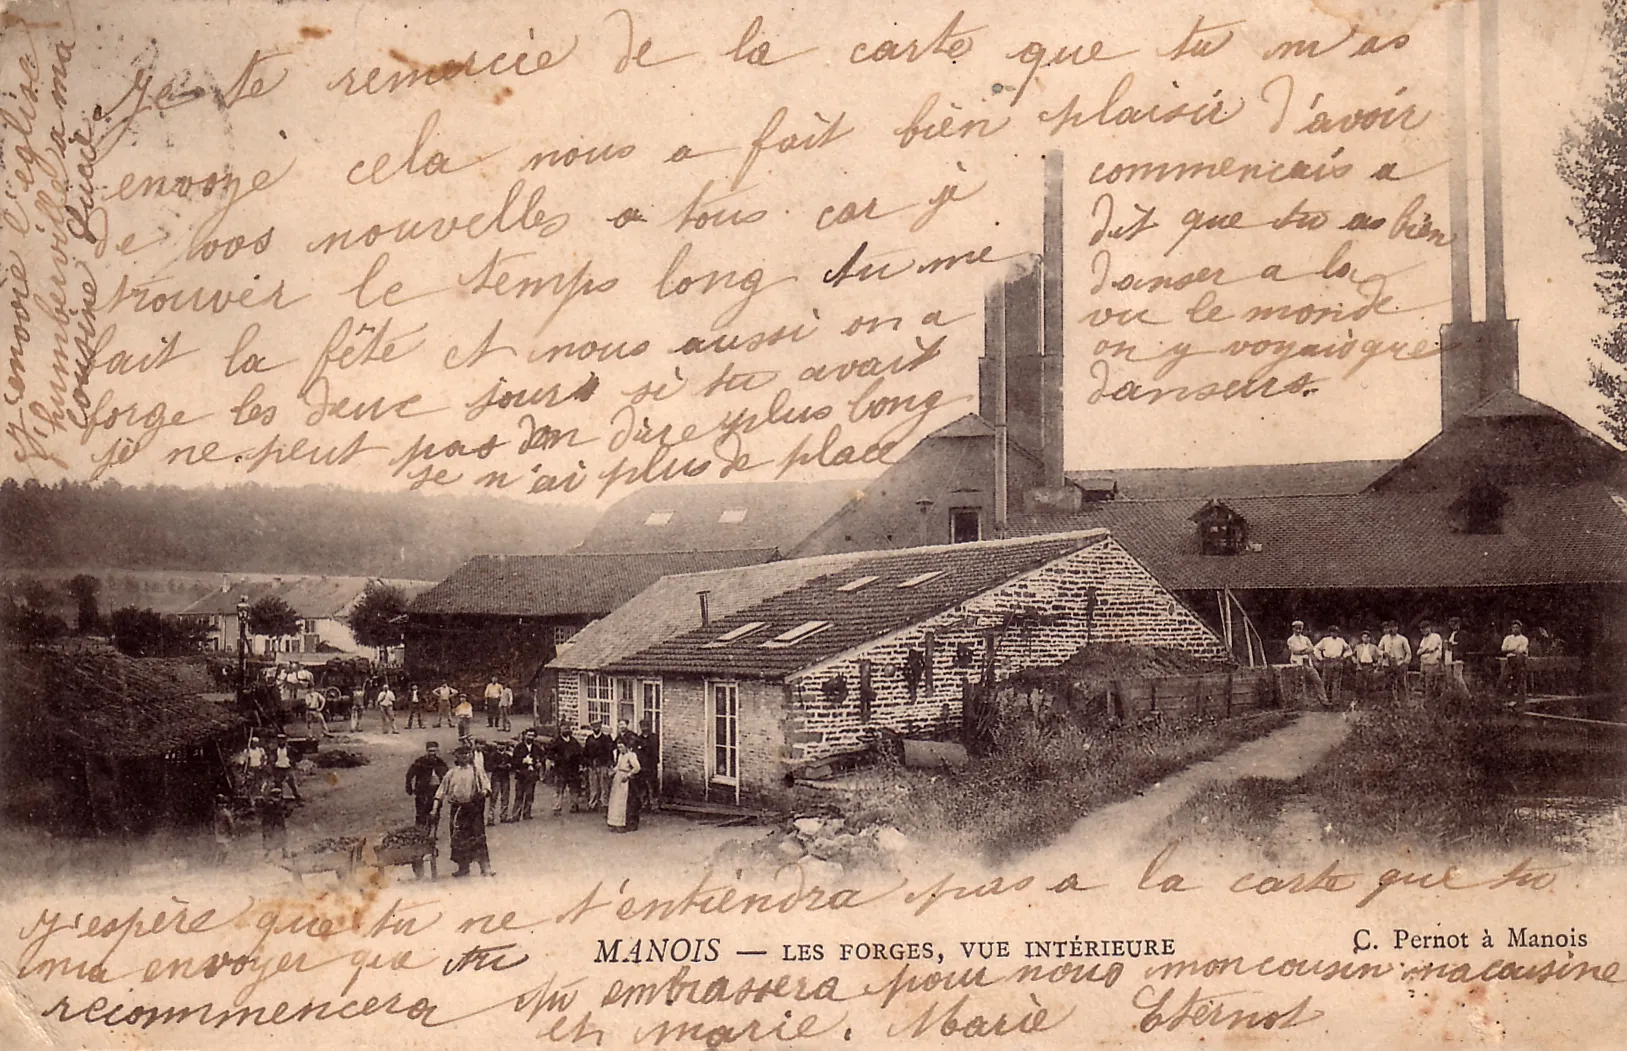 Je te remercie de la carte que tu m'as
envoyé cela nous a fait bien plaisir d'avoir
de vos nouvelles a tous car je
trouver le temps long tu me
fait la fête et nous aussi on a
forge les deuc jours si tu avait
je ne peut pas d'en dire plus long
je n'ai plus de place
commencais a
dit que tu as bien
danser a la
vu le monde
on y voyais que
danseurs.
J'envoie l'église
humberville a ma
cousine Lucie
J'espère que tu ne t'entiendra pas a la carte que tu
ma envoyer que tu
recommencera tu embrassera pour nous mon cousin ma cousine
et marie. Marie Eternot
MANOIS — LES FORGES, VUE INTÉRIEURE
C. Pernot à Manois